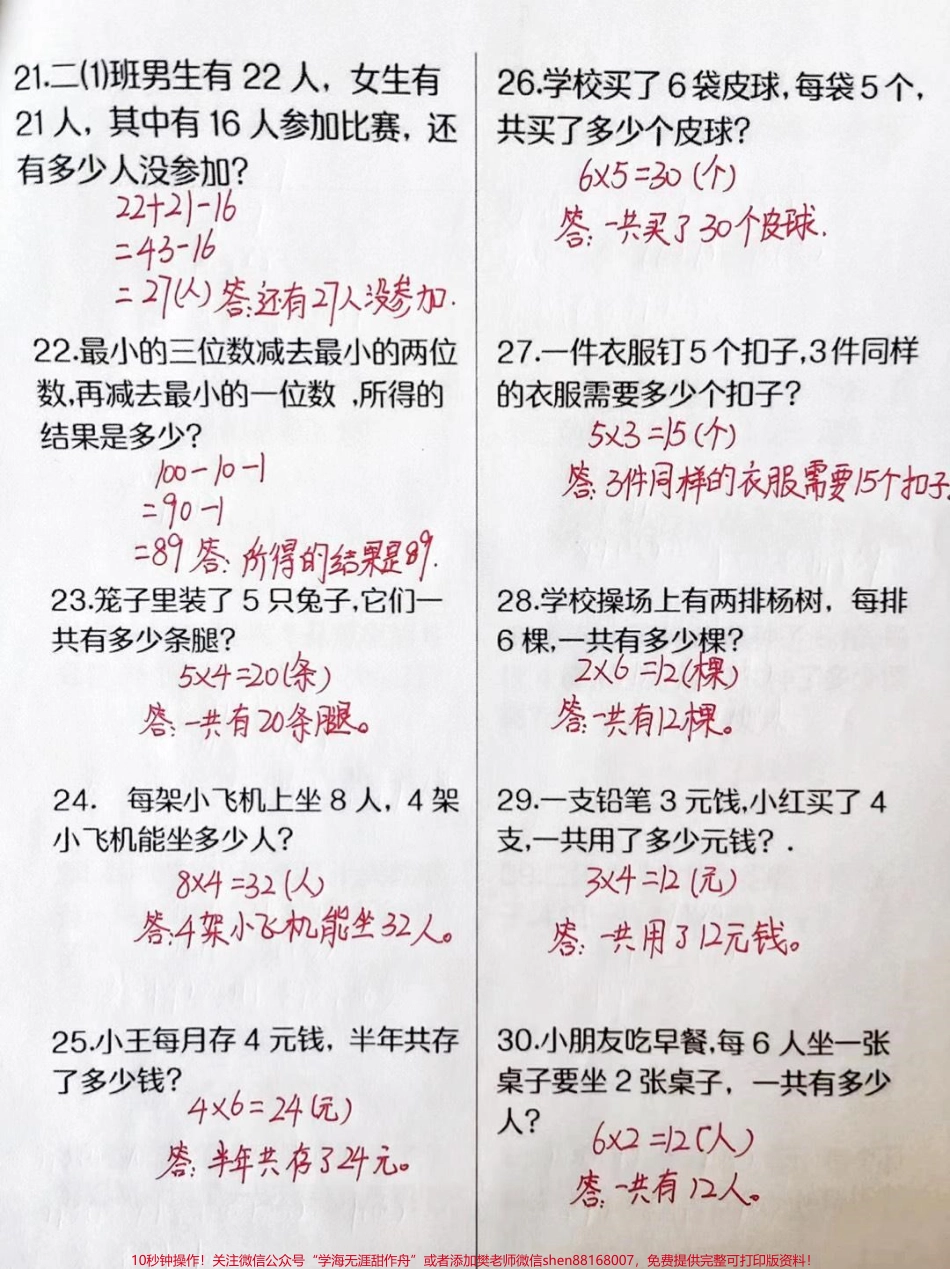 21.二(1)班男生有 22 人，女生有
21 人，其中有 16 人参加比赛，还
有多少人没参加？
22+21-16
=43-16
=27(人) 答:还有27人没参加.
22.最小的三位数减去最小的两位
数,再减去最小的一位数 ,所得的
结果是多少？
100-10-1
=90-1
=89 答: 所得的结果是89.
23.笼子里装了 5 只兔子,它们一
共有多少条腿？
5×4=20(条)
答:一共有20条腿。
24. 每架小飞机上坐 8 人，4 架
小飞机能坐多少人？
8×4=32(人)
答:4架小飞机能坐32人。
25.小王每月存 4 元钱，半年共存
了多少钱？
4×6=24(元)
答:半年共存了24元。
26.学校买了 6 袋皮球,每袋 5 个，
共买了多少个皮球？
6×5=30(个)
答:一共买了30个皮球.
27.一件衣服钉 5 个扣子,3 件同样
的衣服需要多少个扣子？
5×3=15(个)
答:3件同样的衣服需要15个扣子.
28.学校操场上有两排杨树，每排
6 棵,一共有多少棵？
2×6=12(棵)
答:一共有12棵。
29.一支铅笔 3 元钱,小红买了 4
支,一共用了多少元钱？.
3×4=12(元)
答:一共用了12元钱。
30.小朋友吃早餐,每 6 人坐一张
桌子要坐 2 张桌子，一共有多少
人？
6×2=12(人)
答:一共有12人。
10秒钟操作！关注微信公众号“学海无涯甜作舟”或者添加樊老师微信shen88168007，免费提供完整可打印版资料！